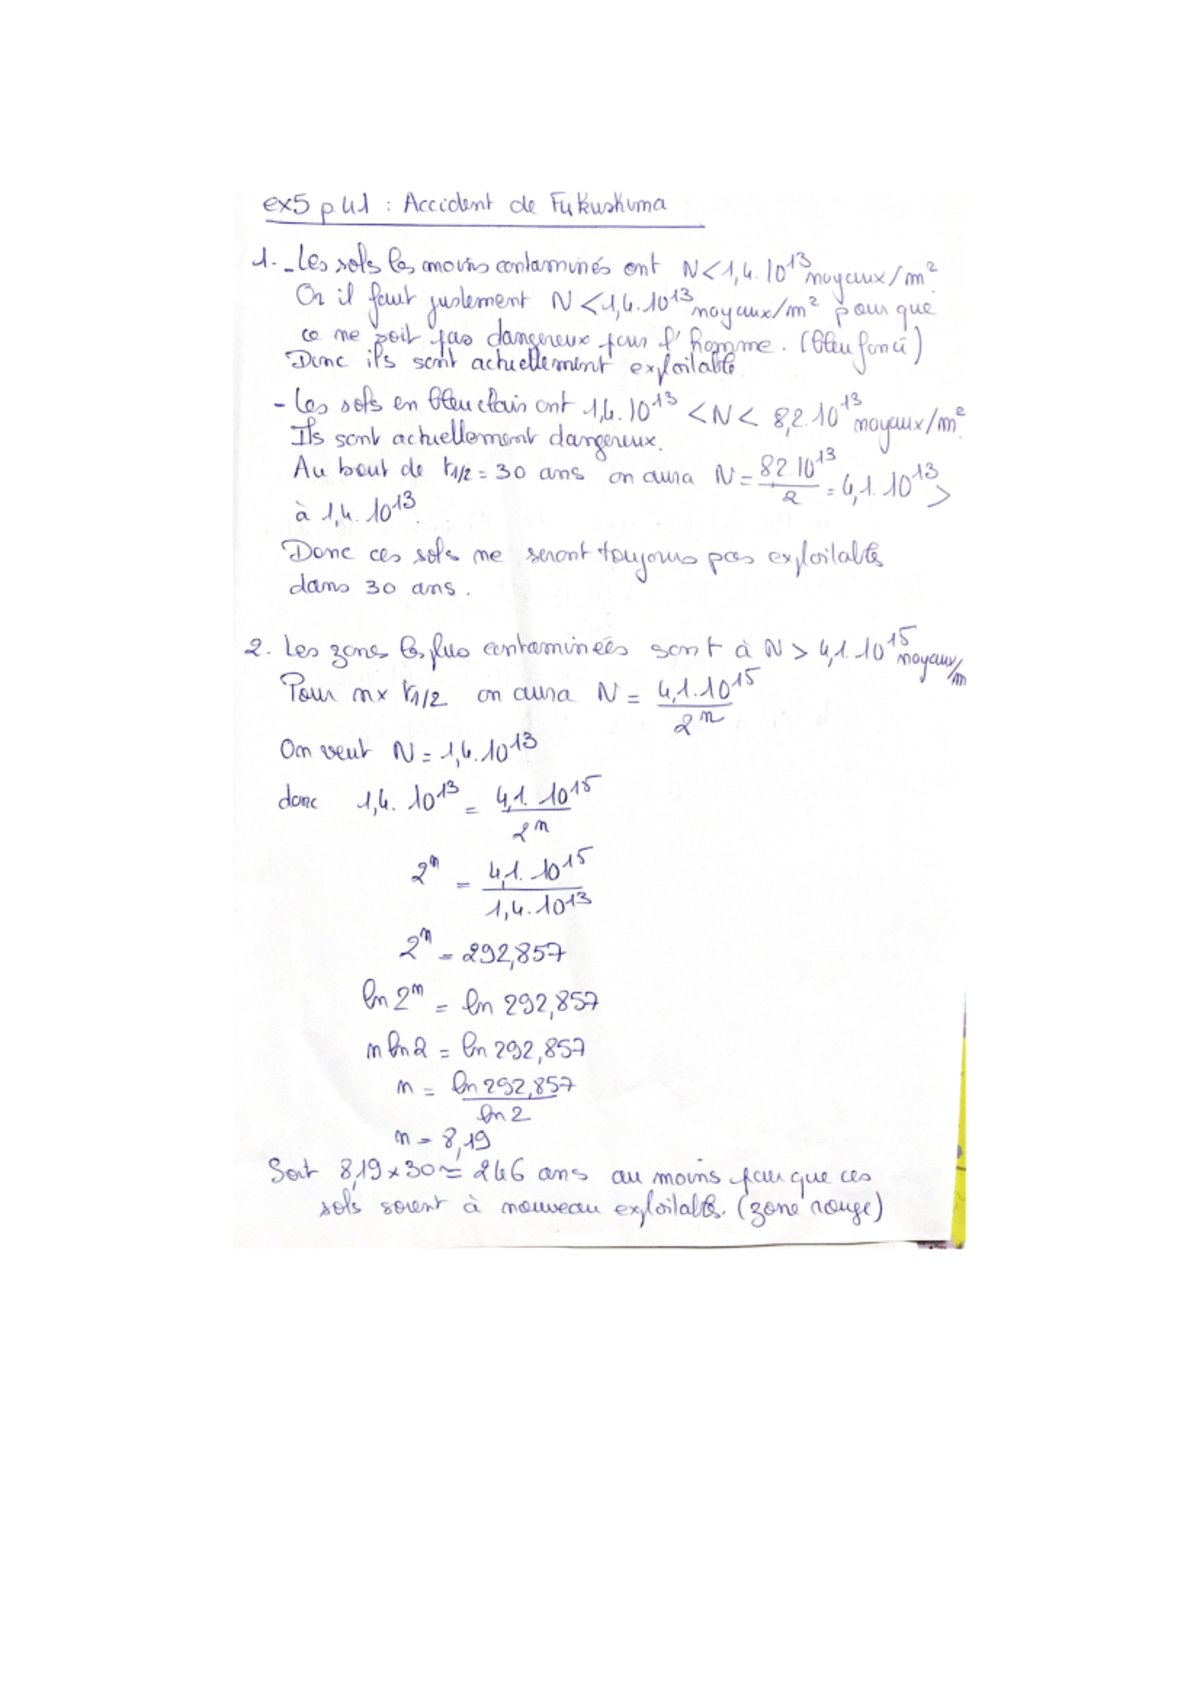 ex5 p 41 : Accident de Fukushima
1. - Les sols les moins contaminés ont N < 1,4. 10^13 noyaux/m²
Or il faut justement N < 1,4. 10^13 noyaux/m² pour que
ce ne soit pas dangereux pour l'homme. (bleu foncé)
Donc ils sont actuellement exploitables
- Les sols en bleu clair ont 1,4. 10^13 < N < 8,2. 10^13 noyaux/m².
Ils sont actuellement dangereux.
Au bout de t1/2 = 30 ans on aura N = 8,2.10^13 / 2 = 4,1. 10^13 >
à 1,4. 10^13.
Donc ces sols ne seront toujours pas exploitables
dans 30 ans.
2. Les zones les plus contaminées sont à N > 4,1. 10^15 noyaux/m
Pour n x t1/2 on aura N = 4,1. 10^15 / 2^n
On veut N = 1,4. 10^13
donc 1,4. 10^13 = 4,1. 10^15 / 2^n
2^n = 4,1. 10^15 / 1,4. 10^13
2^n = 292,857
ln 2^n = ln 292,857
n ln 2 = ln 292,857
n = ln 292,857 / ln 2
n = 8,19
Soit 8,19 x 30 ≃ 246 ans au moins pour que ces
sols soient à nouveau exploitables. (zone rouge)